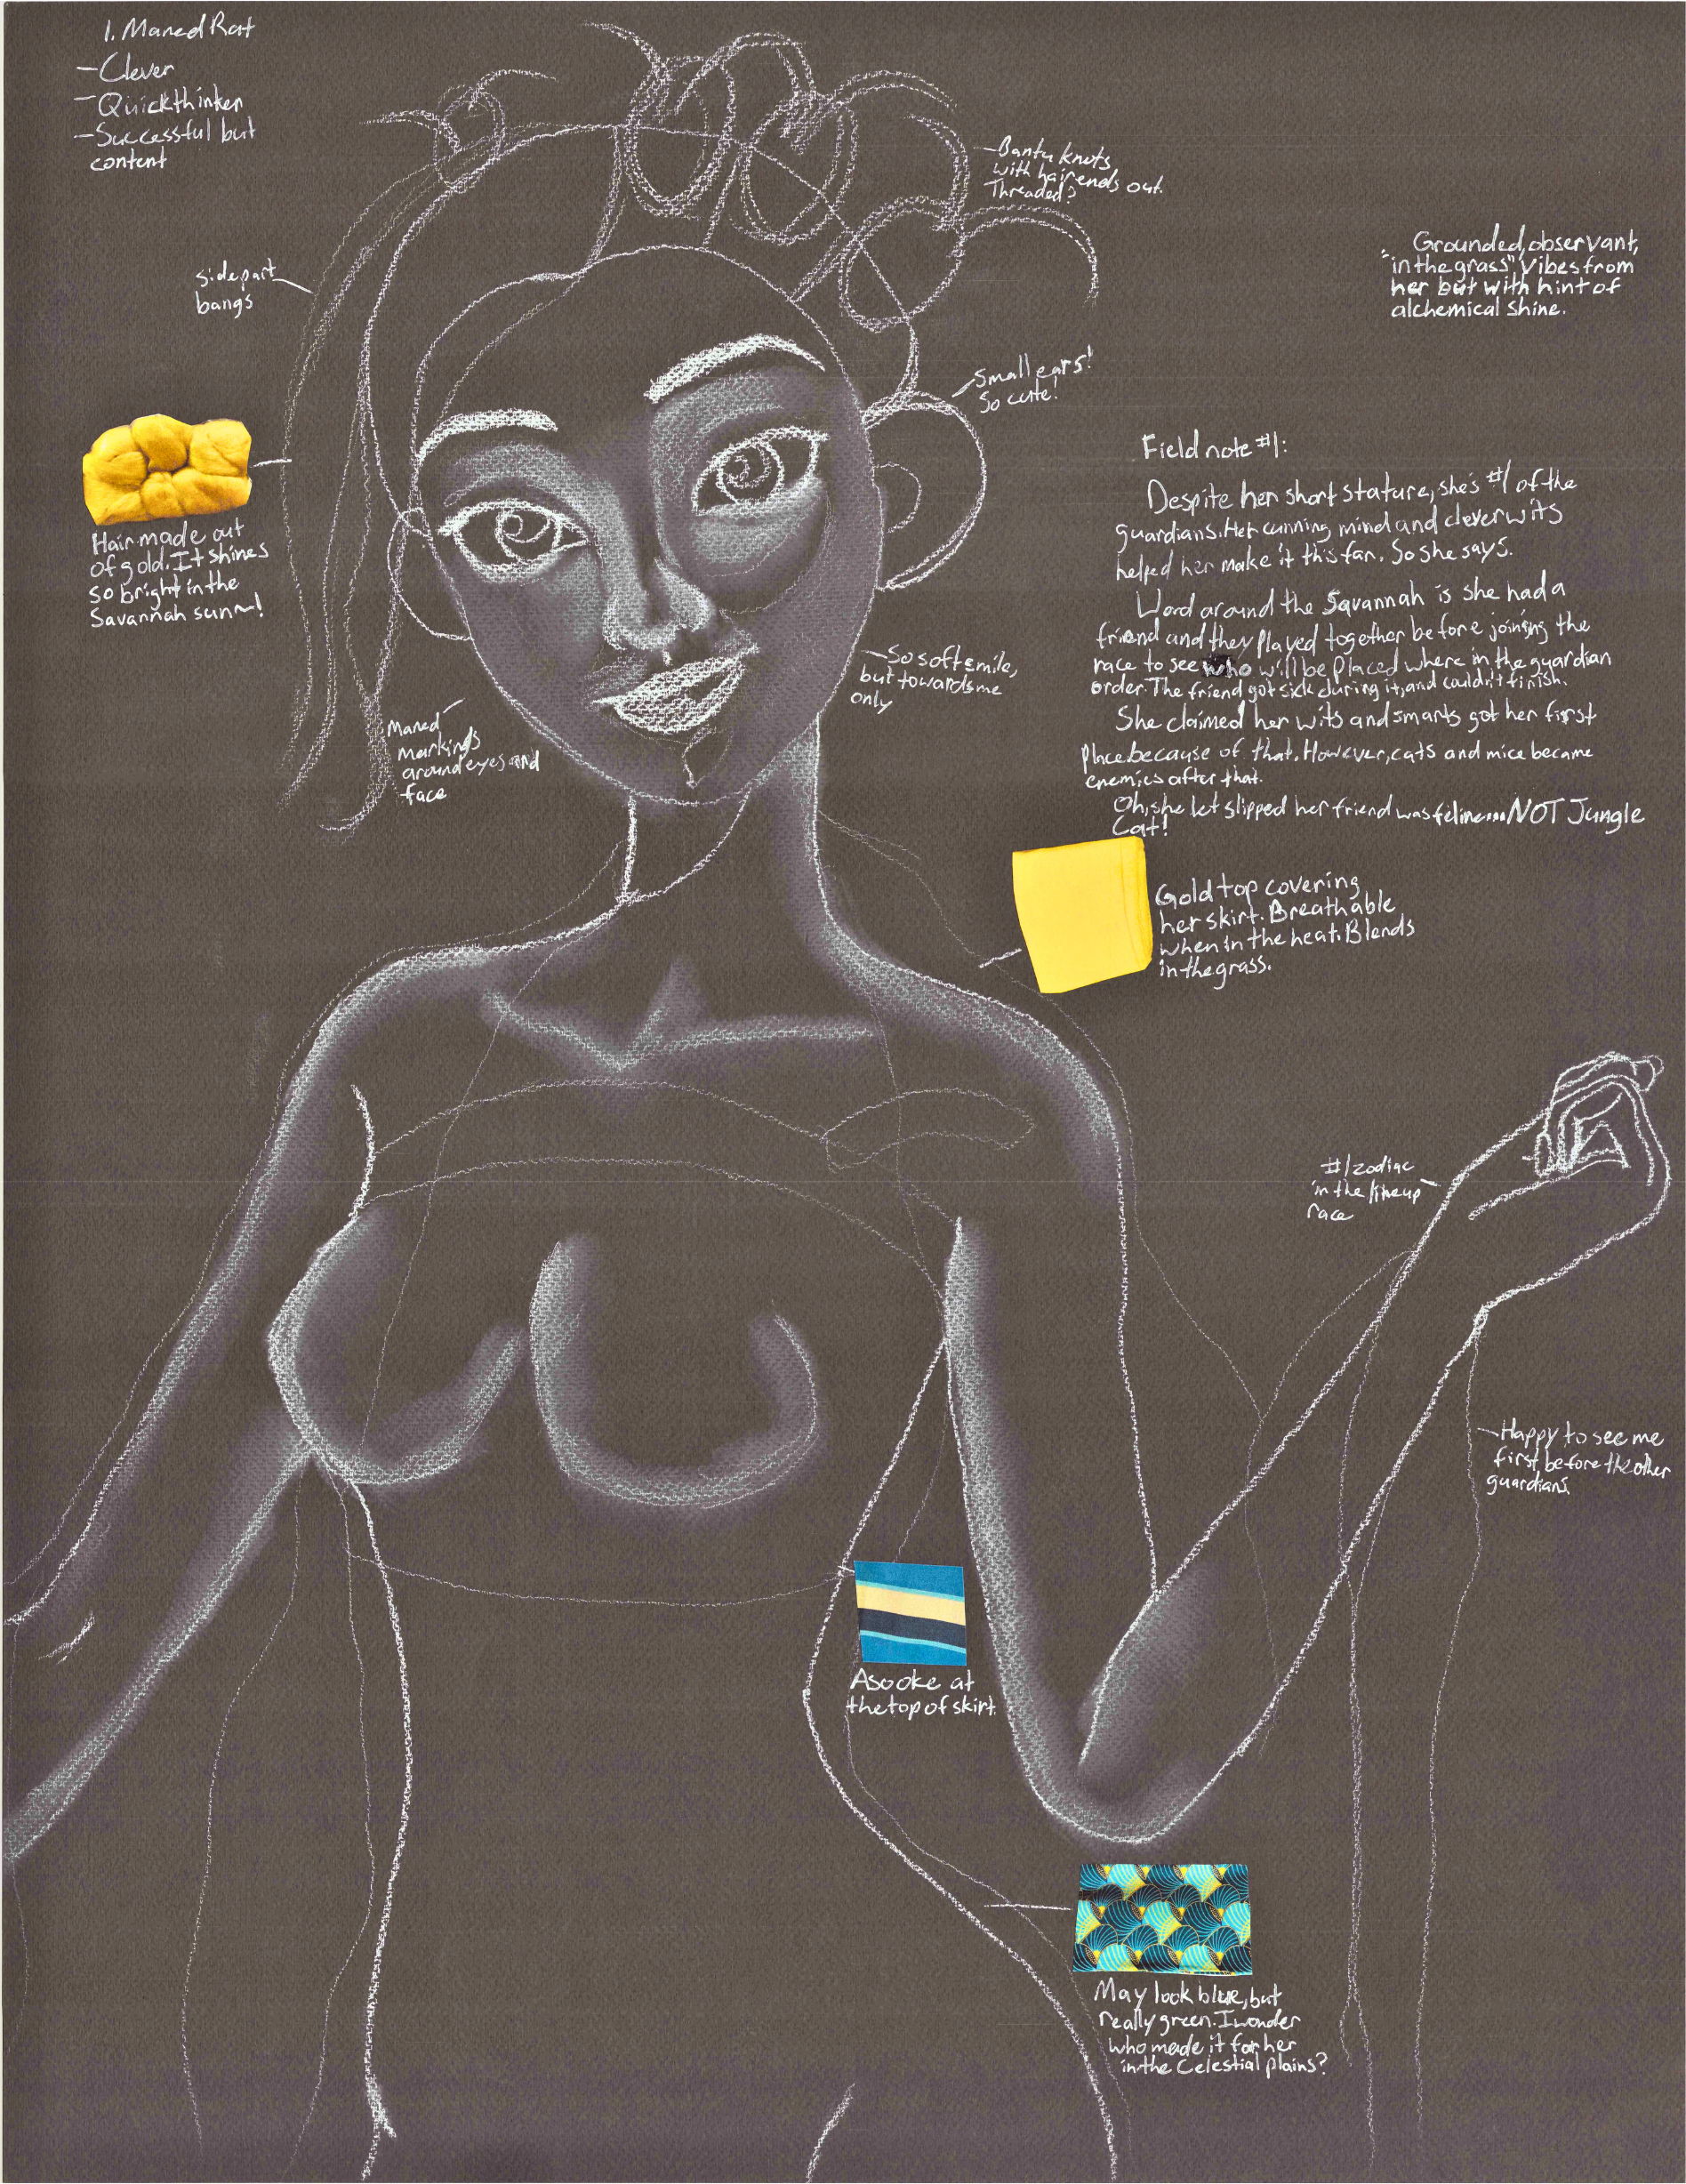 1. Maned Rat
-Clever
-Quickthinker
-Successful but
content
Bantu knots
with hair ends out.
Threaded?
Grounded, observant,
"in the grass" vibes from
her but with hint of
alchemical shine.
side part
bangs
Small ears!
So cute!
Hair made out
of gold. It shines
so bright in the
Savannah sun~!
Field note #1:
Despite her short stature, she's #1 of the
guardians. Her cunning mind and clever wits
helped her make it this far. So she says.
Word around the Savannah is she had a
friend and they played together before joining the
race to see who will be placed where in the guardian
order. The friend got sick during it, and couldn't finish.
She claimed her wits and smarts got her first
place because of that. However, cats and mice became
enemies after that.
Oh, she let slipped her friend was feline... NOT Jungle
Cat!
-So soft smile,
but towards me
only
Maned
markings
around eyes and
face
Gold top covering
her skirt. Breathable
when in the heat. Blends
in the grass.
#1 zodiac
in the lineup
race
-Happy to see me
first before the other
guardians.
Aso oke at
the top of skirt.
May look blue, but
really green. I wonder
who made it for her
in the Celestial plains?